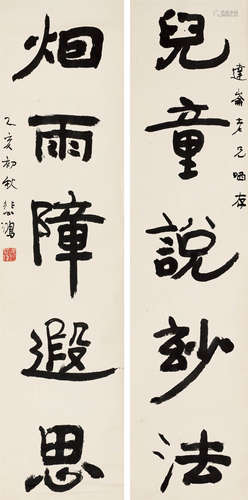 達崙老兄哂存
兒童說妙法
烟雨障遐思
乙亥初秋悲鴻